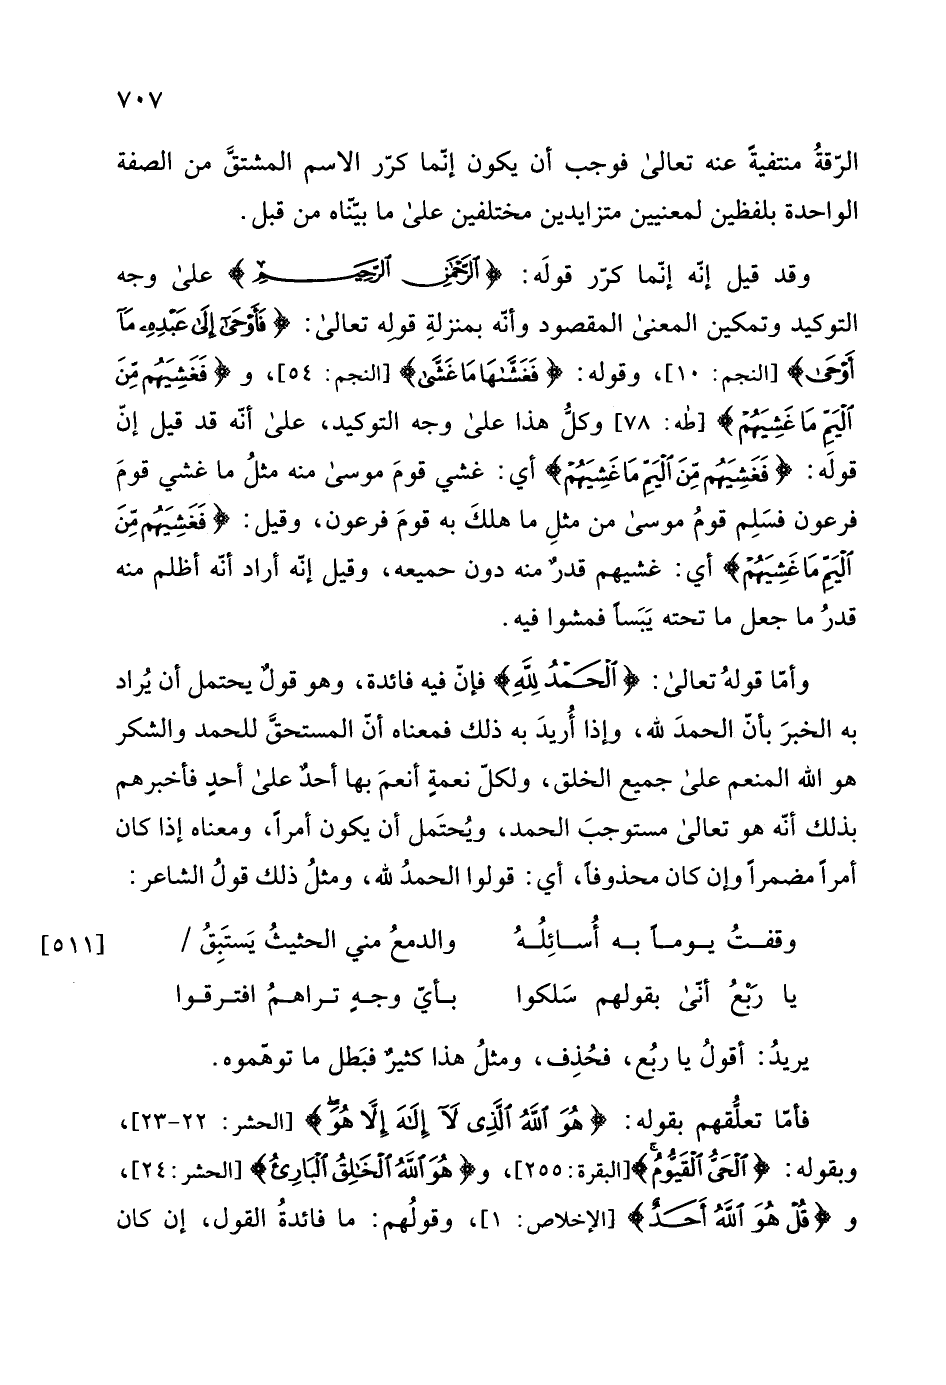 ٧٠٧
الرّقةُ منتفيةً عنه تعالىٰ فوجب أن يكون إنّما كرّر الاسم المشتقَّ من الصفة
الواحدة بلفظين لمعنيين متزايدين مختلفين علىٰ ما بيّناه من قبل.
وقد قيل إنّه إنّما كرّر قولَه: ﴿ٱلرَّحْمَٰنِ ٱلرَّحِيمِ﴾ علىٰ وجه
التوكيد وتمكين المعنىٰ المقصود وأنّه بمنزلةِ قولِه تعالىٰ: ﴿فَأَوْحَىٰٓ إِلَىٰ عَبْدِهِۦ مَآ
أَوْحَىٰ﴾ [النجم: ١٠]، وقوله: ﴿فَغَشَّىٰهَا مَا غَشَّىٰ﴾ [النجم: ٥٤]، و ﴿فَغَشِيَهُم مِّنَ
ٱلْيَمِّ مَا غَشِيَهُمْ﴾ [طٰه: ٧٨] وكلُّ هذا علىٰ وجه التوكيد، علىٰ أنّه قد قيل إنّ
قولَه: ﴿فَغَشِيَهُم مِّنَ ٱلْيَمِّ مَا غَشِيَهُمْ﴾ أي: غشي قومَ موسىٰ منه مثلُ ما غشي قومَ
فرعون فسَلِم قومُ موسىٰ من مثلِ ما هلكَ به قومَ فرعون، وقيل: ﴿فَغَشِيَهُم مِّنَ
ٱلْيَمِّ مَا غَشِيَهُمْ﴾ أي: غشيهم قدرٌ منه دون حميعه، وقيل إنّه أراد أنّه أظلم منه
قدرُ ما جعل ما تحته يَبَساً فمشوا فيه.
وأمّا قولهُ تعالىٰ: ﴿ٱلْحَمْدُ لِلَّهِ﴾ فإنّ فيه فائدة، وهو قولٌ يحتمل أن يُراد
به الخبرَ بأنّ الحمدَ لله، وإذا أُريدَ به ذلك فمعناه أنّ المستحقَّ للحمد والشكر
هو الله المنعم علىٰ جميع الخلق، ولكلّ نعمةٍ أنعمَ بها أحدٌ علىٰ أحدٍ فأخبرهم
بذلك أنّه هو تعالىٰ مستوجبَ الحمد، ويُحتَمل أن يكون أمراً، ومعناه إذا كان
أمراً مضمراً وإن كان محذوفاً، أي: قولوا الحمدُ لله، ومثلُ ذلك قولُ الشاعر:
وقفـتُ يـومـاً بـه أُسـائِلُـهُ والدمعُ مني الحثيثُ يَستَبِقُ / [٥١١]
يا رَبْعُ أنّىٰ بقولهم سَلكوا بـأيّ وجـهٍ تـراهـمُ افترقـوا
يريدُ: أقولُ يا ربُع، فحُذِف، ومثلُ هذا كثيرٌ فبَطل ما توهّموه.
فأمّا تعلُّقهم بقوله: ﴿هُوَ ٱللَّهُ ٱلَّذِى لَآ إِلَٰهَ إِلَّا هُوَۖ﴾ [الحشر: ٢٢-٢٣]،
وبقوله: ﴿ٱلْحَىُّ ٱلْقَيُّومُۚ﴾[البقرة:٢٥٥]، و﴿هُوَ ٱللَّهُ ٱلْخَٰلِقُ ٱلْبَارِئُ﴾ [الحشر:٢٤]،
و ﴿قُلْ هُوَ ٱللَّهُ أَحَدٌ﴾ [الإخلاص: ١]، وقولُهم: ما فائدةُ القول، إن كان